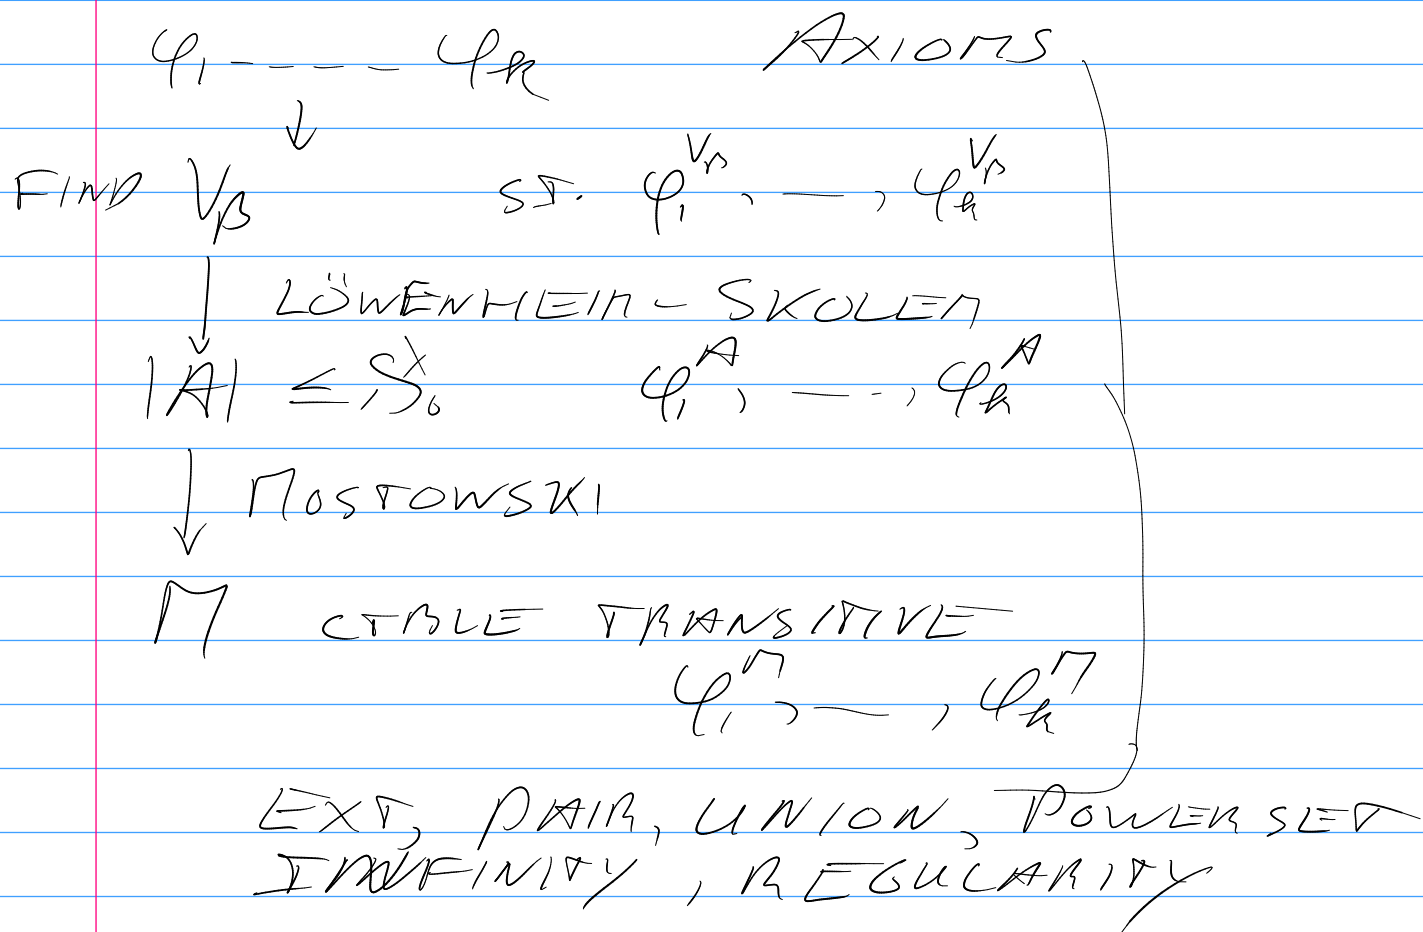 φ₁ - - - - φₖ AXIOMS
↓
FIND V_β ST. φ₁^{V_β}, —, φₖ^{V_β}
↓ LÖWENHEIM - SKOLEM
|A| ≤ ℵ₀ φ₁^A, — - -, φₖ^A
↓ MOSTOWSKI
M CTBLE TRANSITIVE
φ₁^M, —, φₖ^M
EXT, PAIR, UNION, POWER SET
INFINITY, REGULARITY